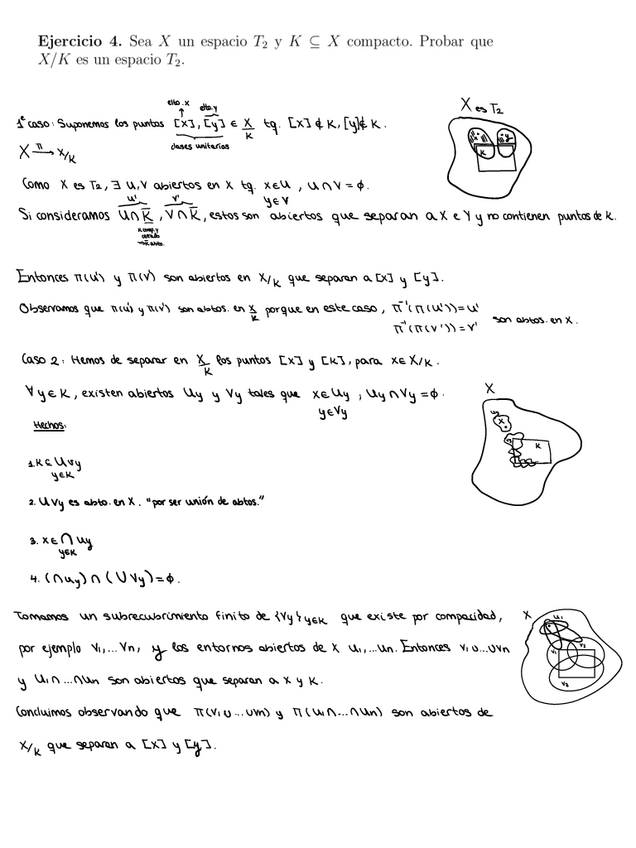 Ejercicio 4. Sea X un espacio T₂ y K ⊆ X compacto. Probar que
X/K es un espacio T₂.
elto. x   elto. y
1º caso: Suponemos los puntos [x], [y] ∈ X/K tq. [x] ∉ K, [y] ∉ K.
clases unitarias
X —π→ X/K
X es T₂
K
Como X es T₂, ∃ U, V abiertos en X tq. x∈U, U∩V = ϕ.
y∈V
U'   V'
Si consideramos U∩K̄, V∩K̄, estos son abiertos que separan a X e Y y no contienen puntos de K.
Entonces π(U') y π(V') son abiertos en X/K que separan a [x] y [y].
Observamos que π(U') y π(V') son abtos. en X/K porque en este caso, π⁻¹(π(U')) = U'
π⁻¹(π(V')) = V'
son abtos. en X.
Caso 2: Hemos de separar en X/K los puntos [x] y [K], para x∈X/K.
∀y∈K, existen abiertos Uy y Vy tales que x∈Uy, Uy∩Vy = ϕ.
y∈Vy
X
K
Hechos:
1. K⊆ ∪Vy
y∈K
2. ∪Vy es abto. en X. "por ser unión de abtos."
3. x∈ ∩Uy
y∈K
4. (∩Uy)∩(∪Vy) = ϕ.
Tomamos un subrecubrimiento finito de {Vy}y∈K que existe por compacidad,
por ejemplo V₁,...Vn, y los entornos abiertos de X U₁,...Un. Entonces V₁∪...∪Vn
y U₁∩...∩Un son abiertos que separan a x y K.
X
U₁
V₁
V₂
Concluimos observando que π(V₁∪...∪Vn) y π(U₁∩...∩Un) son abiertos de
X/K que separan a [x] y [y].